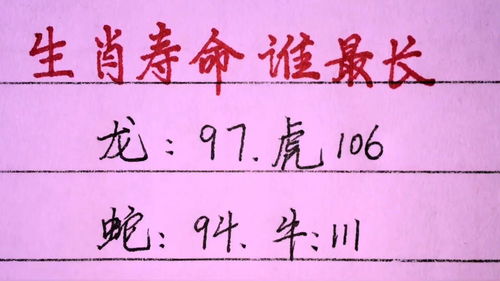 生肖寿命谁最长
龙：97.虎106
蛇：94.牛：111